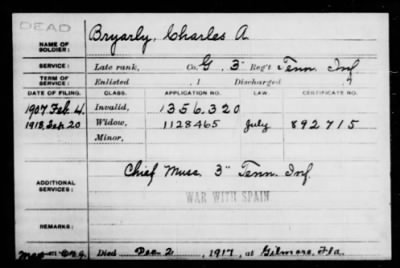 DEAD
NAME OF SOLDIER: Bryarly, Charles A.
SERVICE: Late rank, Co. G, 3" Reg't Tenn. Inf
TERM OF SERVICE: Enlisted , 1 Discharged , 1
DATE OF FILING. CLASS. APPLICATION NO. LAW. CERTIFICATE NO.
1907 Feb. 4. Invalid, 1356.320
1918, Sep. 20 Widow, 1128465 July 892715
Minor,
ADDITIONAL SERVICES: Chief Musc. 3" Tenn. Inf.
WAR WITH SPAIN
REMARKS:
Died Dec. 2, 1917, at Gilmore, Fla.